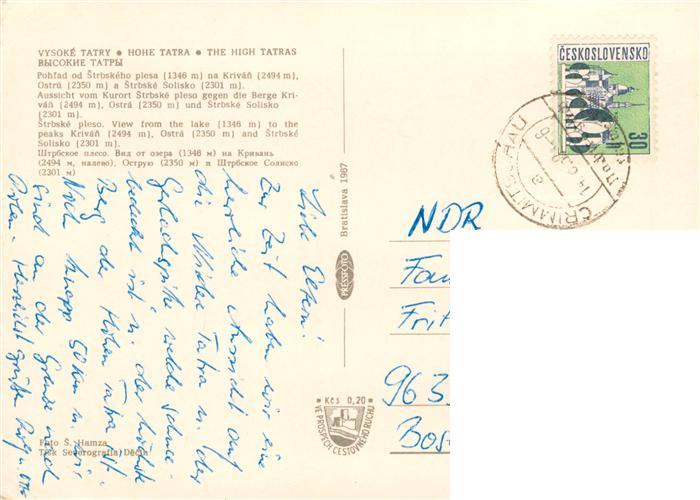 VYSOKÉ TATRY ● HOHE TATRA ● THE HIGH TATRAS
ВЫСОКИЕ ТАТРЫ
Pohľad od Štrbského plesa (1346 m) na Kriváň (2494 m),
Ostrú (2350 m) a Štrbské Solisko (2301 m).
Aussicht vom Kurort Štrbské pleso gegen die Berge Kri-
váň (2494 m), Ostrá (2350 m) und Štrbské Solisko
(2301 m).
Štrbské pleso. View from the lake (1346 m) to the
peaks Kriváň (2494 m), Ostrá (2350 m) and Štrbské
Solisko (2301 m).
Штрбское плесо. Вид от озера (1346 м) на Кривань
(2494 м, налево), Острую (2350 м) и Штрбское Солиско
(2301 м)
Liebe Eltern!
Zur Zeit haben wir eine
herrliche Aussicht auf
die Niedere Tatra u. der
Gerlachspitze welche schnee-
bedeckt ist u. der höchste
Berg der Hohen Tatra ist.
Noch knapp 50 km u. wir
sind an der Grenze nach
Polen. Herzlichst grüßen
Foto Š. Hamza
Tlsk Severografia Děčín
Bratislava 1967
PRESSFOTO
Kčs 0,20
VE PROSPĚCH CESTOVNÍHO RUCHU
ČESKOSLOVENSKO
30 h
CRIMMITSCHAU
NDR
Fam
Frit
963
Bos